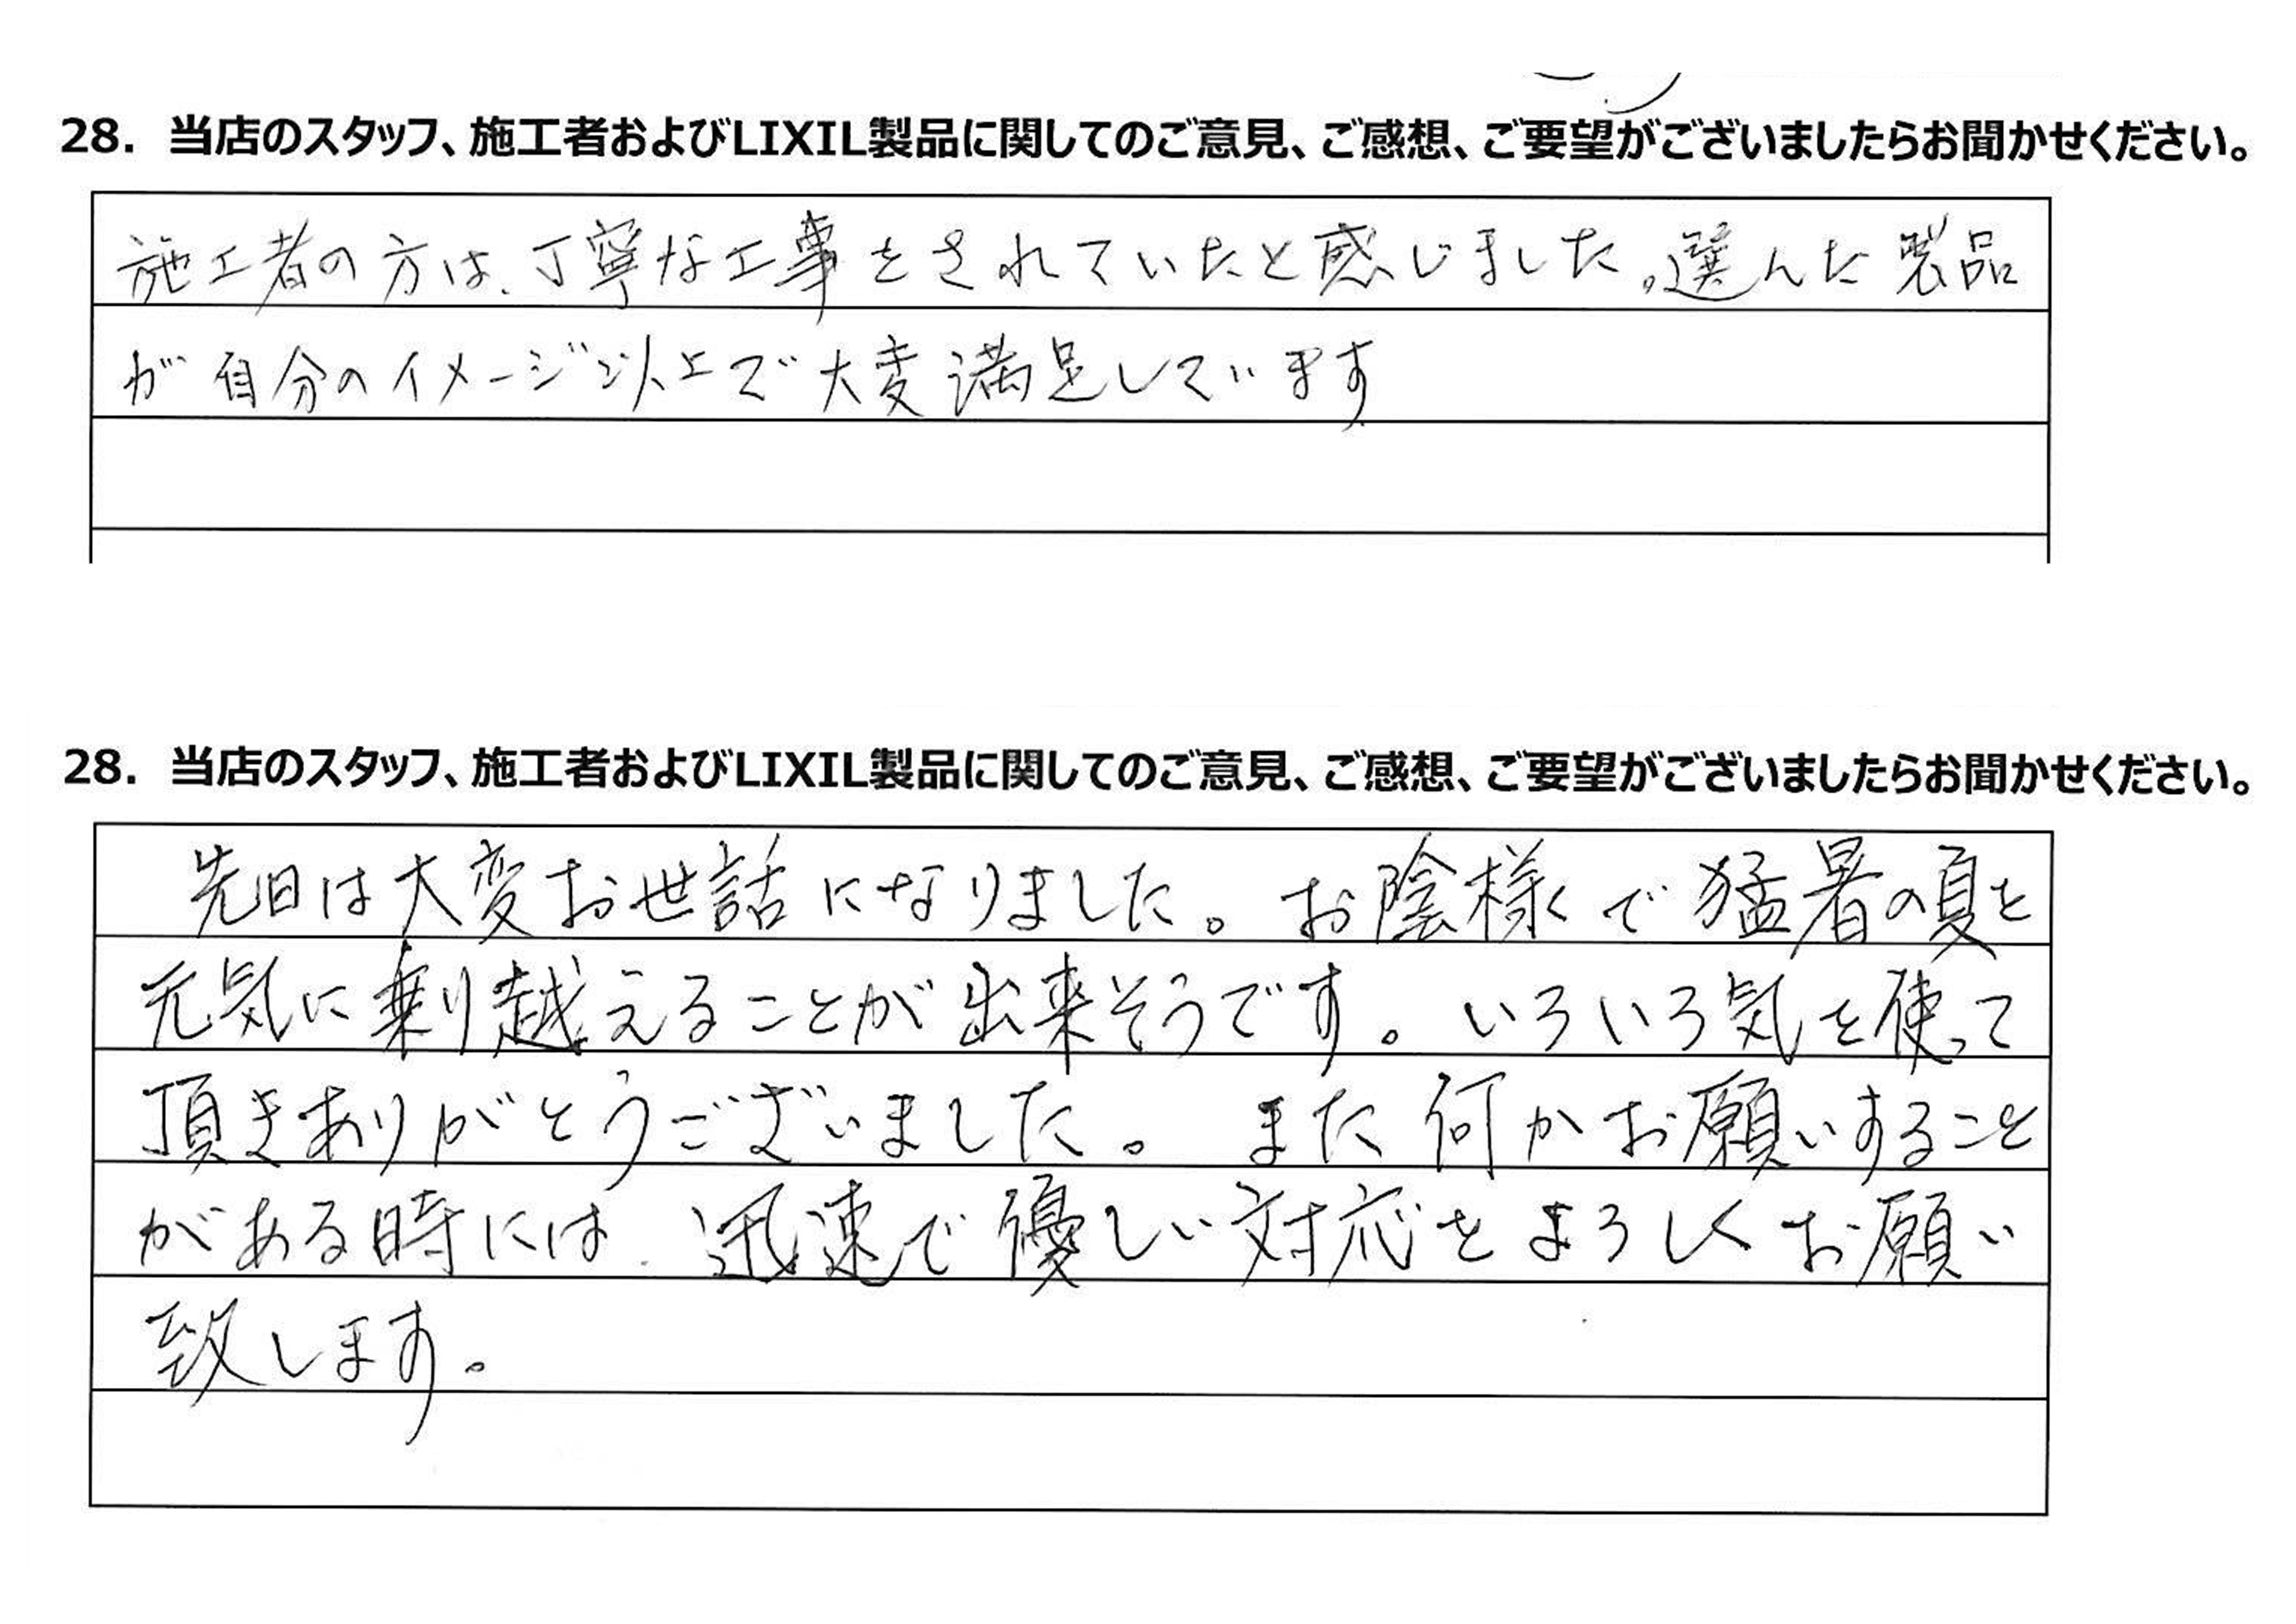 28. 当店のスタッフ、施工者およびLIXIL製品に関してのご意見、ご感想、ご要望がございましたらお聞かせください。
施工者の方は、丁寧な工事をされていたと感じました。選んだ製品
が自分のイメージ以上で大変満足しています
28. 当店のスタッフ、施工者およびLIXIL製品に関してのご意見、ご感想、ご要望がございましたらお聞かせください。
先日は大変お世話になりました。お陰様で猛暑の夏を
元気に乗り越えることが出来そうです。いろいろ気を使って
頂きありがとうございました。また何かお願いすること
がある時には、迅速で優しい対応をよろしくお願い
致します。